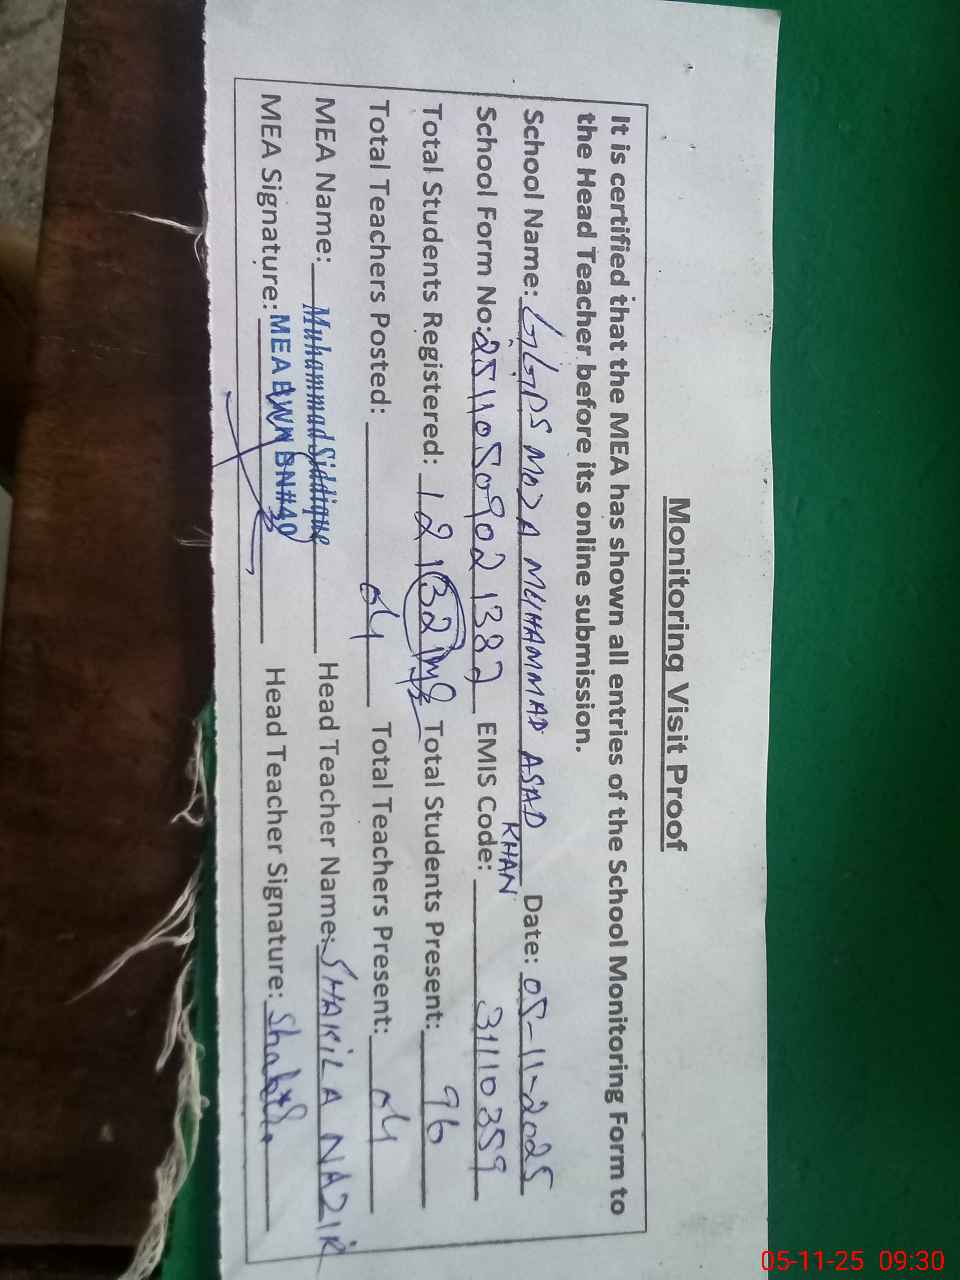 Monitoring Visit Proof
It is certified that the MEA has shown all entries of the School Monitoring Form to
the Head Teacher before its online submission.
School Name: GGPS MOZA MUHAMMAD ASAD KHAN Date: 05-11-2025
School Form No: 25110509021382 EMIS Code: 31110359
Total Students Registered: 121 (32 Total Students Present: 96
Total Teachers Posted: 04 Total Teachers Present: 04
MEA Name: Muhammad Siddique Head Teacher Name: SHAKILA NAZIR
MEA Signature: MEA BWN BN#40 Head Teacher Signature:
05-11-25 09:30